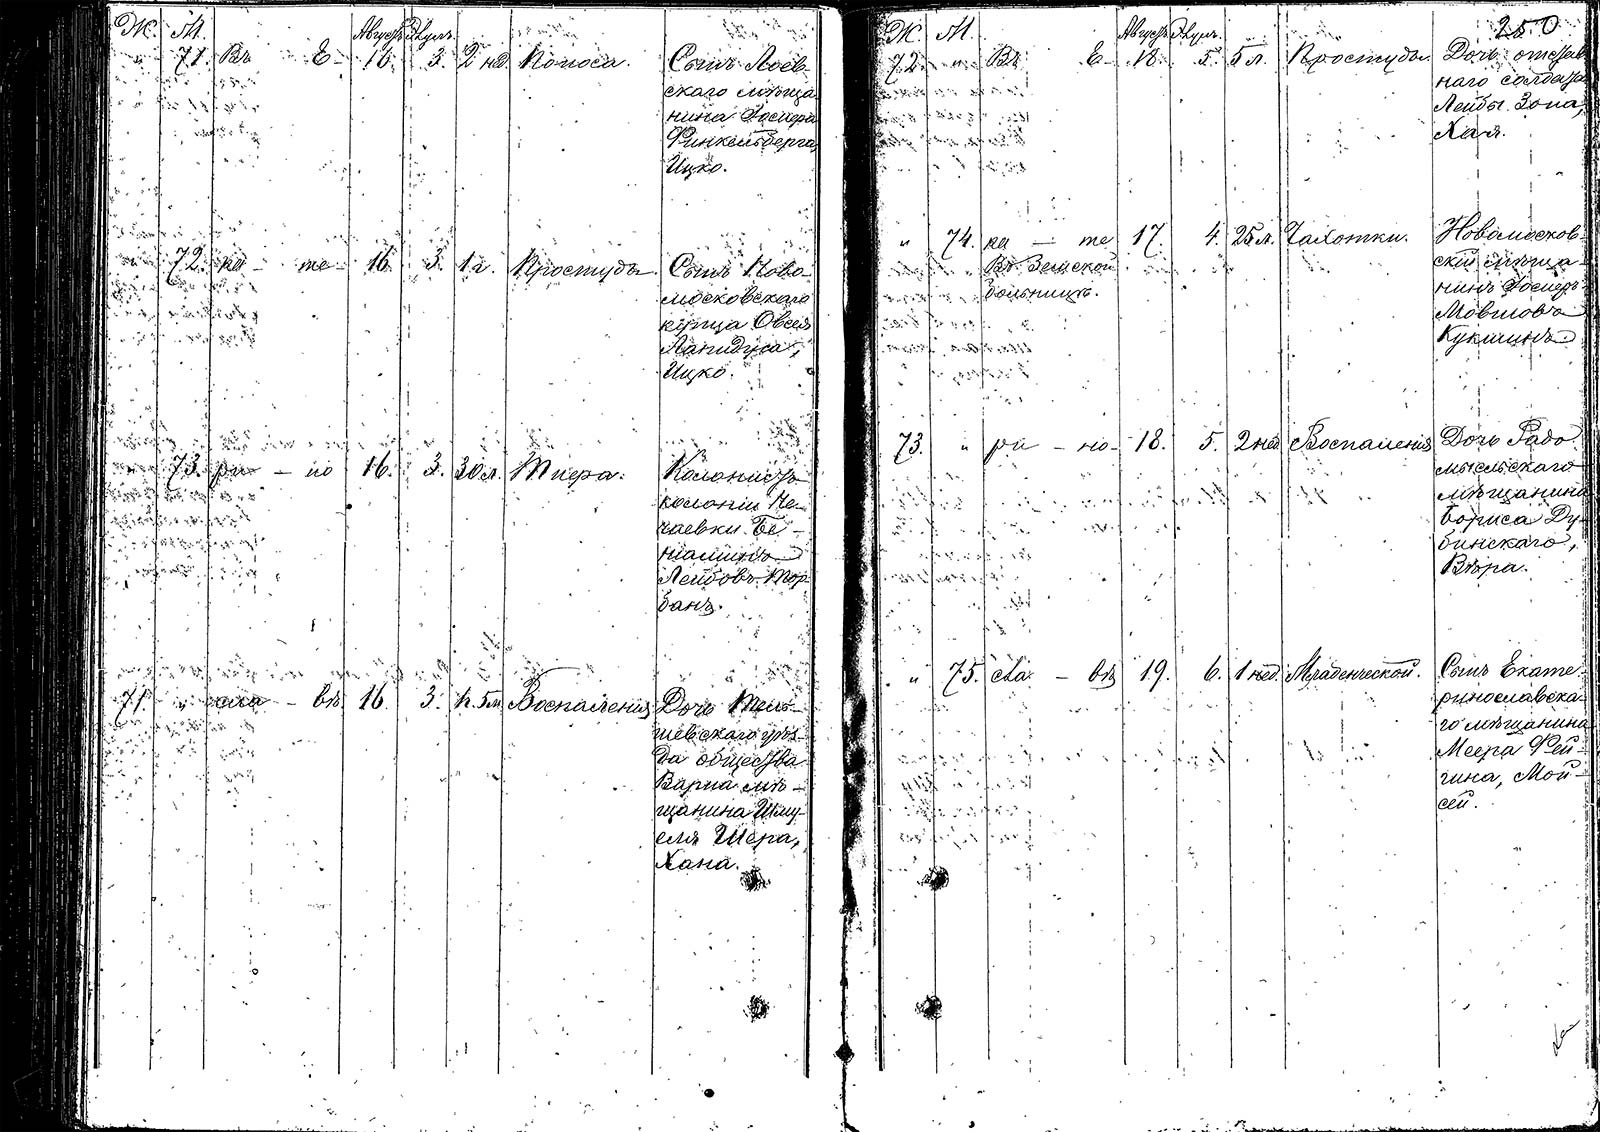 Ж. М. Августъ Элулъ.
" 71. Въ Е- 16. 3. 2 нед. Поноса. Сынъ Лоев-
скаго мѣща-
нина Іосифа
Финкельберга,
Ицко.
" 72. ка- те- 16. 3. 1 г. Простуды Сынъ Ново-
московскаго
купца Овсея
Лапидуса,
Ицко.
" 73. ри - но 16. 3. 30 л. Тифа. Колонистъ
колоніи Не-
чаевки Бе-
ніаминъ
Лейбовъ Тор-
банъ.
71. " сла - вѣ 16. 3. 1 г. 5 м. Воспаленія Дочь Тель-
шевскаго уѣз-
да общества
Варна мѣ-
щанина Шму-
еля Шера,
Хана.
250
Ж. М. Августъ Элулъ.
72. " Въ Е- 18. 5. 5 л. Простуды Дочь отстав-
наго солдата
Лейбы Зона,
Хая.
" 74. ка - те 17. 4. 25 л. Чахотки. Новомосков-
Въ Земской скій мѣща-
больницѣ. нинъ Іосифъ
Мовшовъ
Кукшинъ
73. " ри - но- 18. 5. 2 нед. Воспаленія Дочь Радо-
мысльскаго
мѣщанина
Бориса Ду-
бинскаго,
Вѣра.
" 75. сла - вѣ 19. 6. 1 нед. Младенческой. Сынъ Екате-
ринославска-
го мѣщанина
Меера Фей-
гина, Мои-
сей.